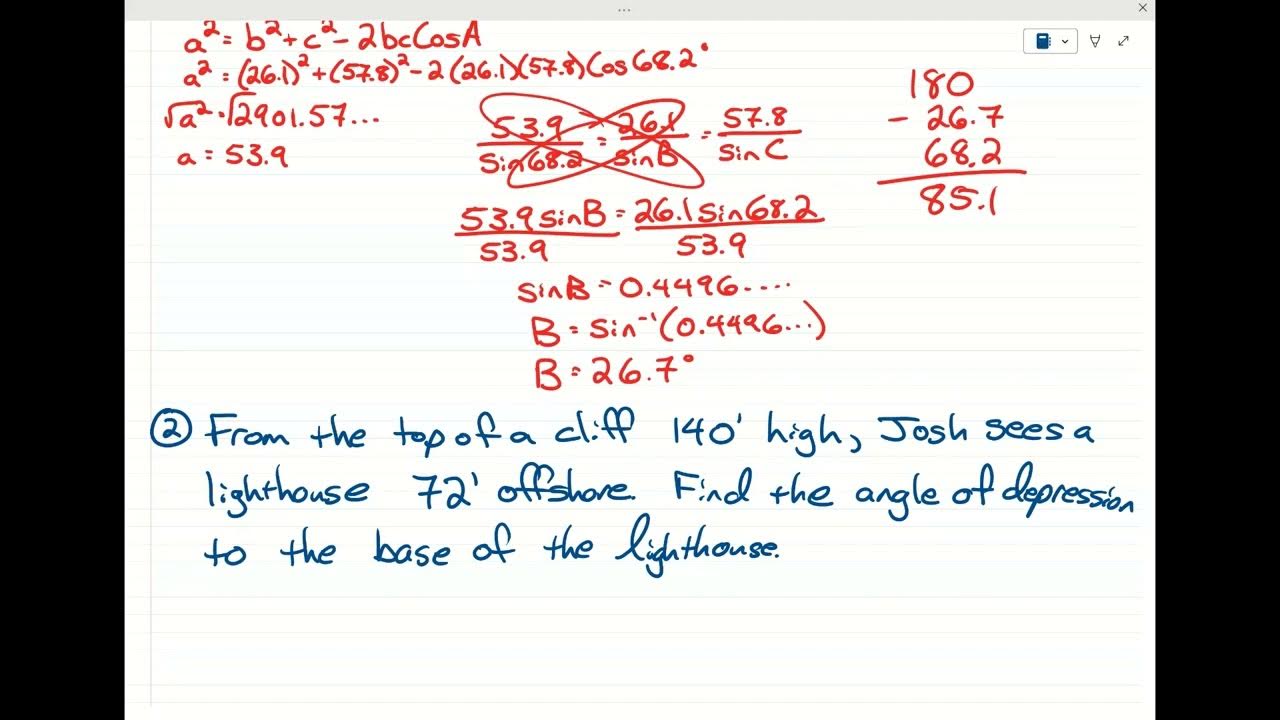 a² = b² + c² - 2bcCosA
a² = (26.1)² + (57.8)² - 2(26.1)(57.8)Cos68.2°
√a² = √2901.57...
a = 53.9
53.9/sin68.2 = 26.1/sinB = 57.8/sinC
53.9sinB/53.9 = 26.1sin68.2/53.9
sinB = 0.4496....
B = sin⁻¹(0.4496...)
B = 26.7°
180
- 26.7
68.2
85.1
② From the top of a cliff 140' high, Josh sees a
lighthouse 72' offshore. Find the angle of depression
to the base of the lighthouse.